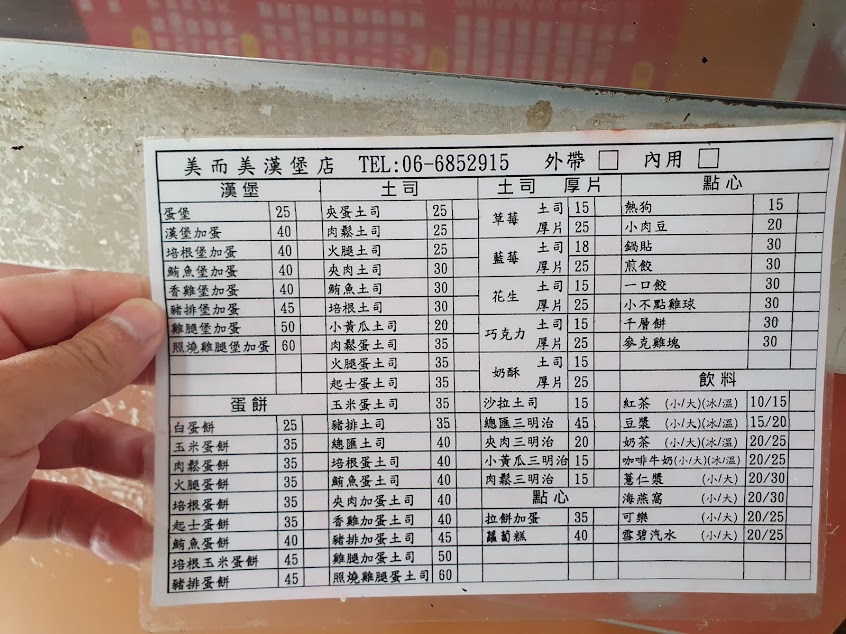 美而美漢堡店 TEL:06-6852915 外帶 □ 內用 □
漢堡
蛋堡 25
漢堡加蛋 40
培根堡加蛋 40
鮪魚堡加蛋 40
香雞堡加蛋 40
豬排堡加蛋 45
雞腿堡加蛋 50
照燒雞腿堡加蛋 60
蛋餅
白蛋餅 25
玉米蛋餅 35
肉鬆蛋餅 35
火腿蛋餅 35
培根蛋餅 35
起士蛋餅 35
鮪魚蛋餅 40
培根玉米蛋餅 45
豬排蛋餅 45
土司
夾蛋土司 25
肉鬆土司 25
火腿土司 25
夾肉土司 30
鮪魚土司 30
培根土司 30
小黃瓜土司 20
肉鬆蛋土司 35
火腿蛋土司 35
起士蛋土司 35
玉米蛋土司 35
豬排土司 35
總匯土司 40
培根蛋土司 40
鮪魚蛋土司 40
夾肉加蛋土司 40
香雞加蛋土司 40
豬排加蛋土司 45
雞腿加蛋土司 50
照燒雞腿蛋土司 60
土司 厚片
草莓 土司 15
厚片 25
藍莓 土司 18
厚片 25
花生 土司 15
厚片 25
巧克力 土司 15
厚片 25
奶酥 土司 15
厚片 25
沙拉土司 15
總匯三明治 45
夾肉三明治 20
小黃瓜三明治 15
肉鬆三明治 15
點心
拉餅加蛋 35
蘿蔔糕 40
點心
熱狗 15
小肉豆 20
鍋貼 30
煎餃 30
一口餃 30
小不點雞球 30
千層餅 30
麥克雞塊 30
飲料
紅茶 (小/大)(冰/溫) 10/15
豆漿 (小/大)(冰/溫) 15/20
奶茶 (小/大)(冰/溫) 20/25
咖啡牛奶(小/大)(冰/溫) 20/25
薏仁漿 (小/大) 20/30
海燕窩 (小/大) 20/30
可樂 (小/大) 20/25
雪碧汽水 (小/大) 20/25